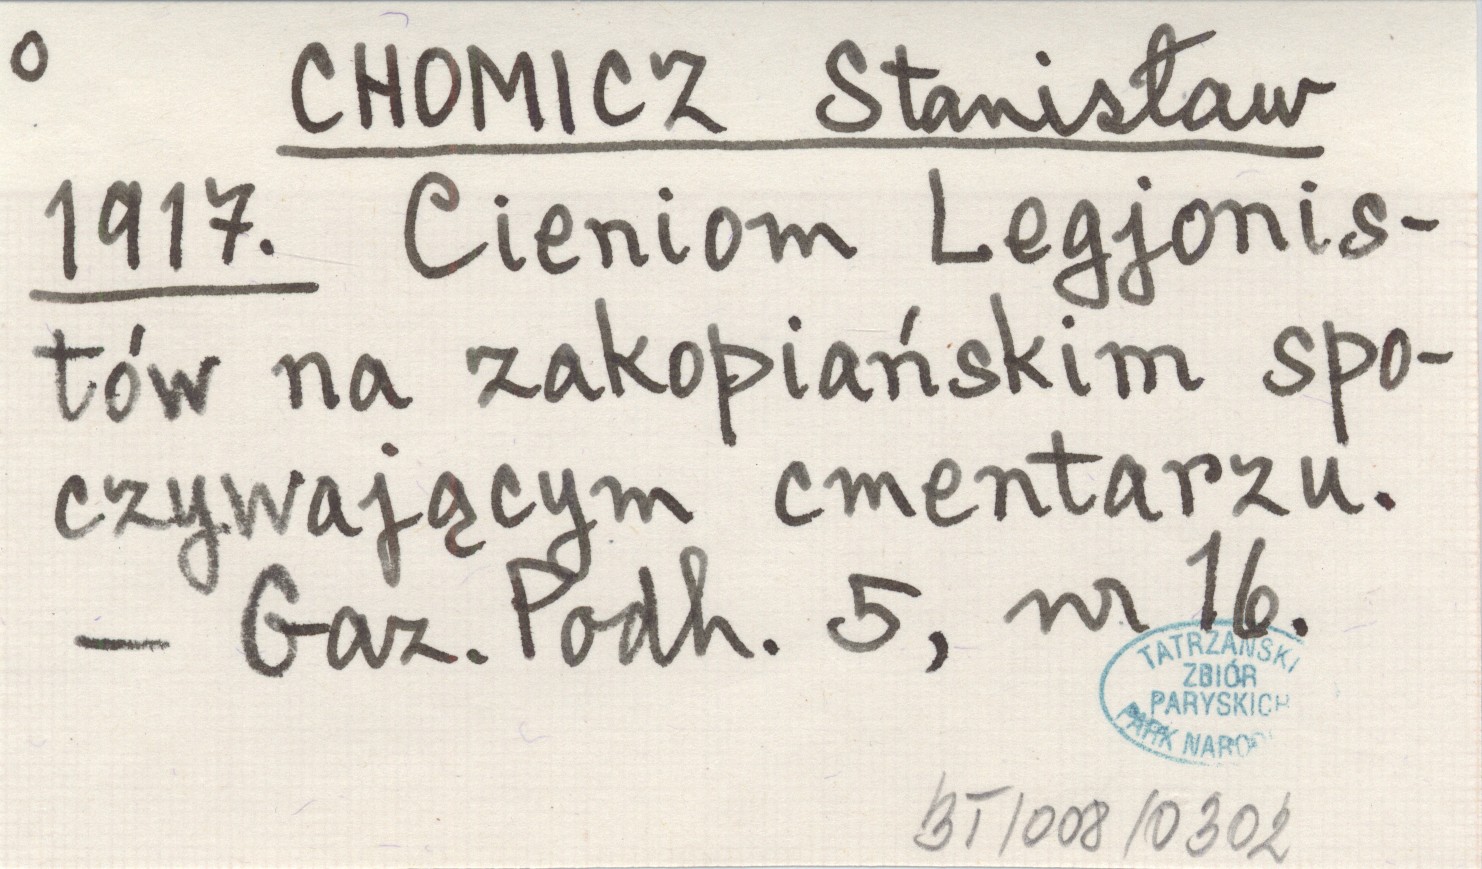 o
CHOMICZ Stanisław
1917. Cieniom Legjonis-
tów na zakopiańskim spo-
czywającym cmentarzu.
— Gaz. Podh. 5, nr 16.
TATRZAŃSKI
ZBIÓR
PARYSKICH
PARK NARO
BT/008/0302